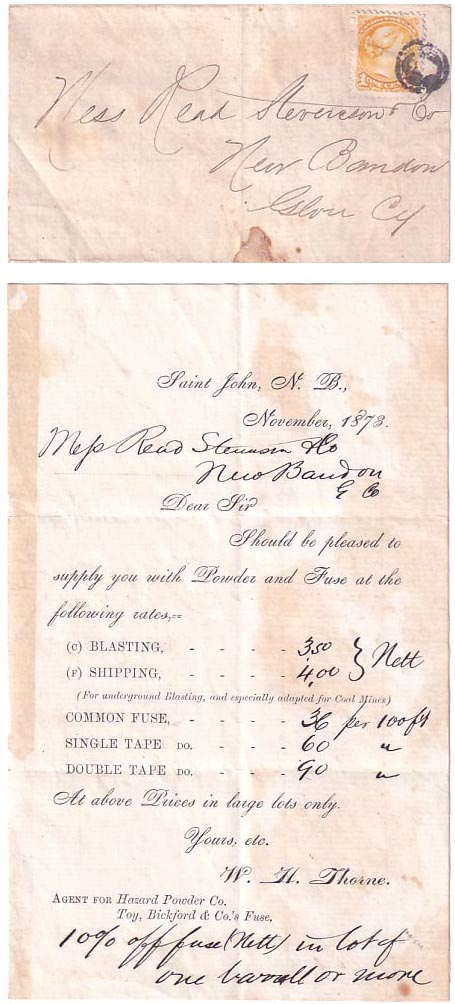 ONE CENT
Mess Read Stevenson & Co
New Bandon
Glou Cy
Saint John, N. B.,
November, 1873.
Mess Read Stevenson & Co
New Bandon
G Co
Dear Sir
Should be pleased to
supply you with Powder and Fuse at the
following rates,--
(C) BLASTING, - - - - 3.50 } Nett
(F) SHIPPING, - - - - 4.00
(For underground Blasting, and especially adapted for Coal Mines)
COMMON FUSE, - - - - 36 per 100 ft
SINGLE TAPE DO. - - - 60 "
DOUBLE TAPE DO. - - - 90 "
At above Prices in large lots only.
Yours, etc.
W. H. Thorne.
AGENT FOR Hazard Powder Co.
Toy, Bickford & Co.'s Fuse.
10% off fuse (Nett) in lot of
one barrall or more